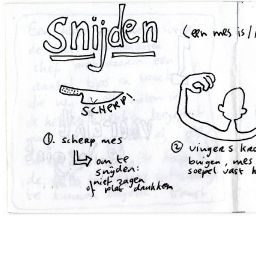 Snijden
(een mes is
SCHERP!
① scherp mes
↳ om te
snijden:
niet zagen
of plat drukken
② vingers
buigen, mes
soepel vast